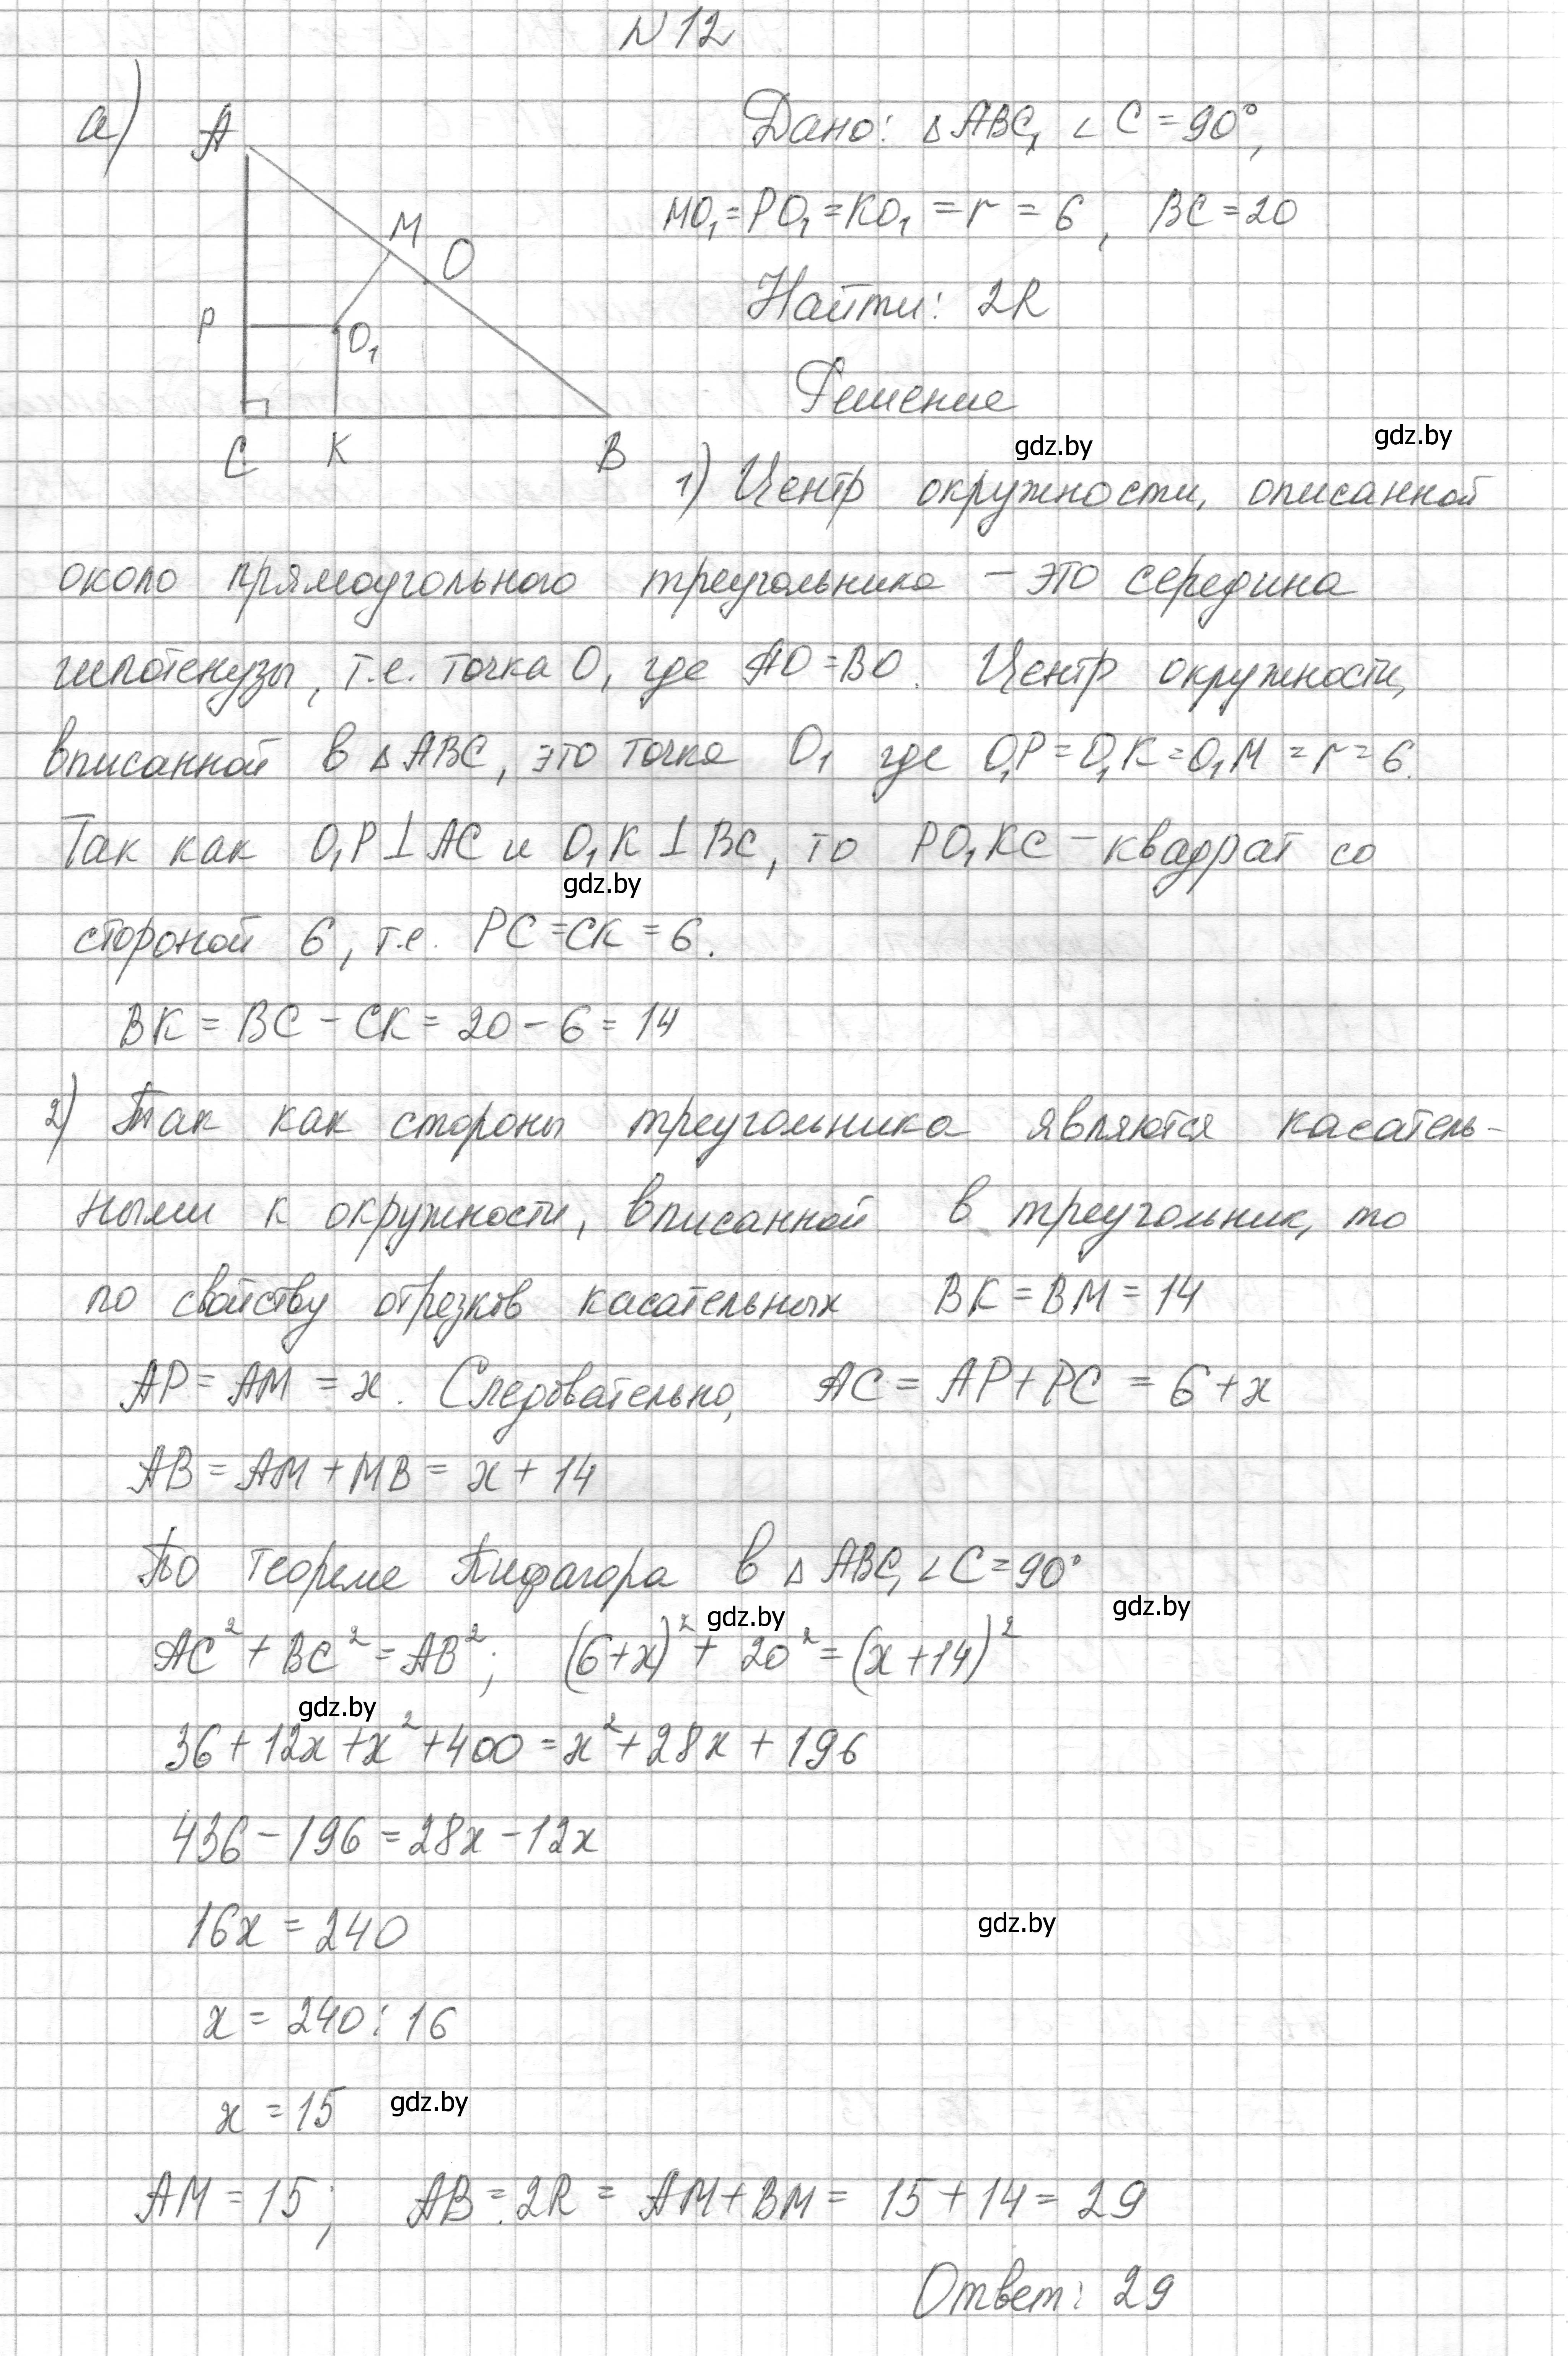 N 12
а)
A
M
O
P
O₁
C
K
B
Дано: △ABC, ∠C = 90°,
MO₁ = PO₁ = KO₁ = r = 6, BC = 20
Найти: 2R
Решение
gdz.by
gdz.by
1) Центр окружности, описанной
около прямоугольного треугольника – это середина
гипотенузы, т.е. точка O, где AO = BO. Центр окружности,
вписанной в △ABC, это точка O₁ где O₁P = O₁K = O₁M = r = 6.
Так как O₁P ⊥ AC и O₁K ⊥ BC, то PO₁KC – квадрат со
gdz.by
стороной 6, т.е. PC = CK = 6.
BK = BC – CK = 20 – 6 = 14
2) Так как стороны треугольника являются касатель-
ными к окружности, вписанной в треугольник, то
по свойству отрезков касательных BK = BM = 14
AP = AM = x. Следовательно, AC = AP + PC = 6 + x
AB = AM + MB = x + 14
По теореме Пифагора в △ABC, ∠C = 90°
gdz.by
gdz.by
AC² + BC² = AB²; (6+x)² + 20² = (x+14)²
gdz.by
36 + 12x + x² + 400 = x² + 28x + 196
436 – 196 = 28x – 12x
16x = 240
gdz.by
x = 240 : 16
x = 15
gdz.by
AM = 15; AB = 2R = AM + BM = 15 + 14 = 29
Ответ: 29